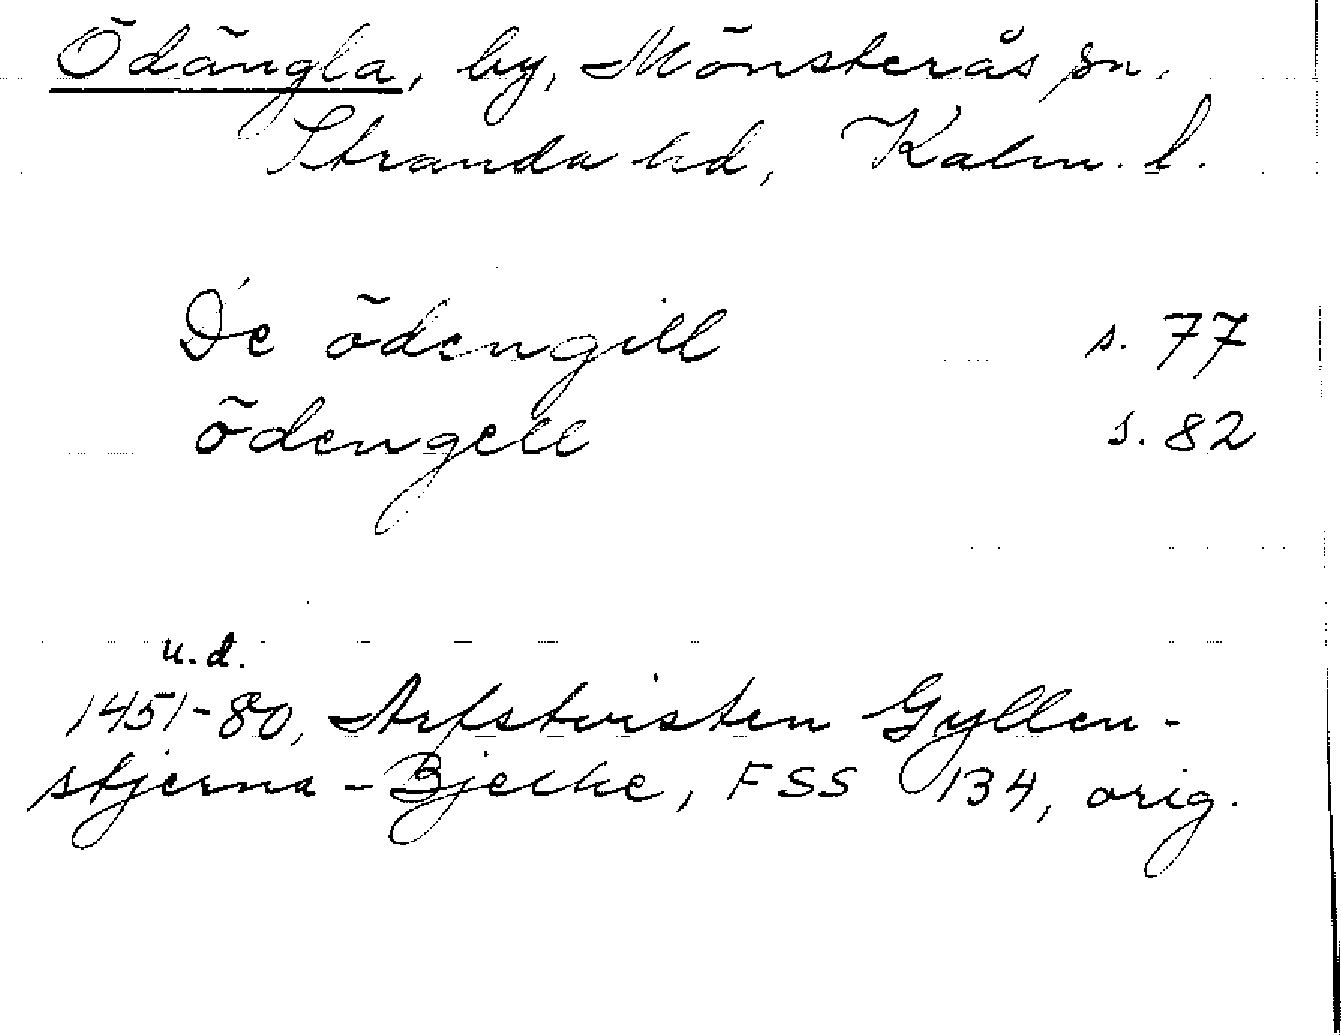 Ödängla, by, Mönsterås sn.
Stranda hd, Kalm. l.
De ödengill s. 77
ödengell s. 82
u.d.
1451-80, Arfstvisten Gyllen-
stjerna - Bjelke, FSS 134, orig.